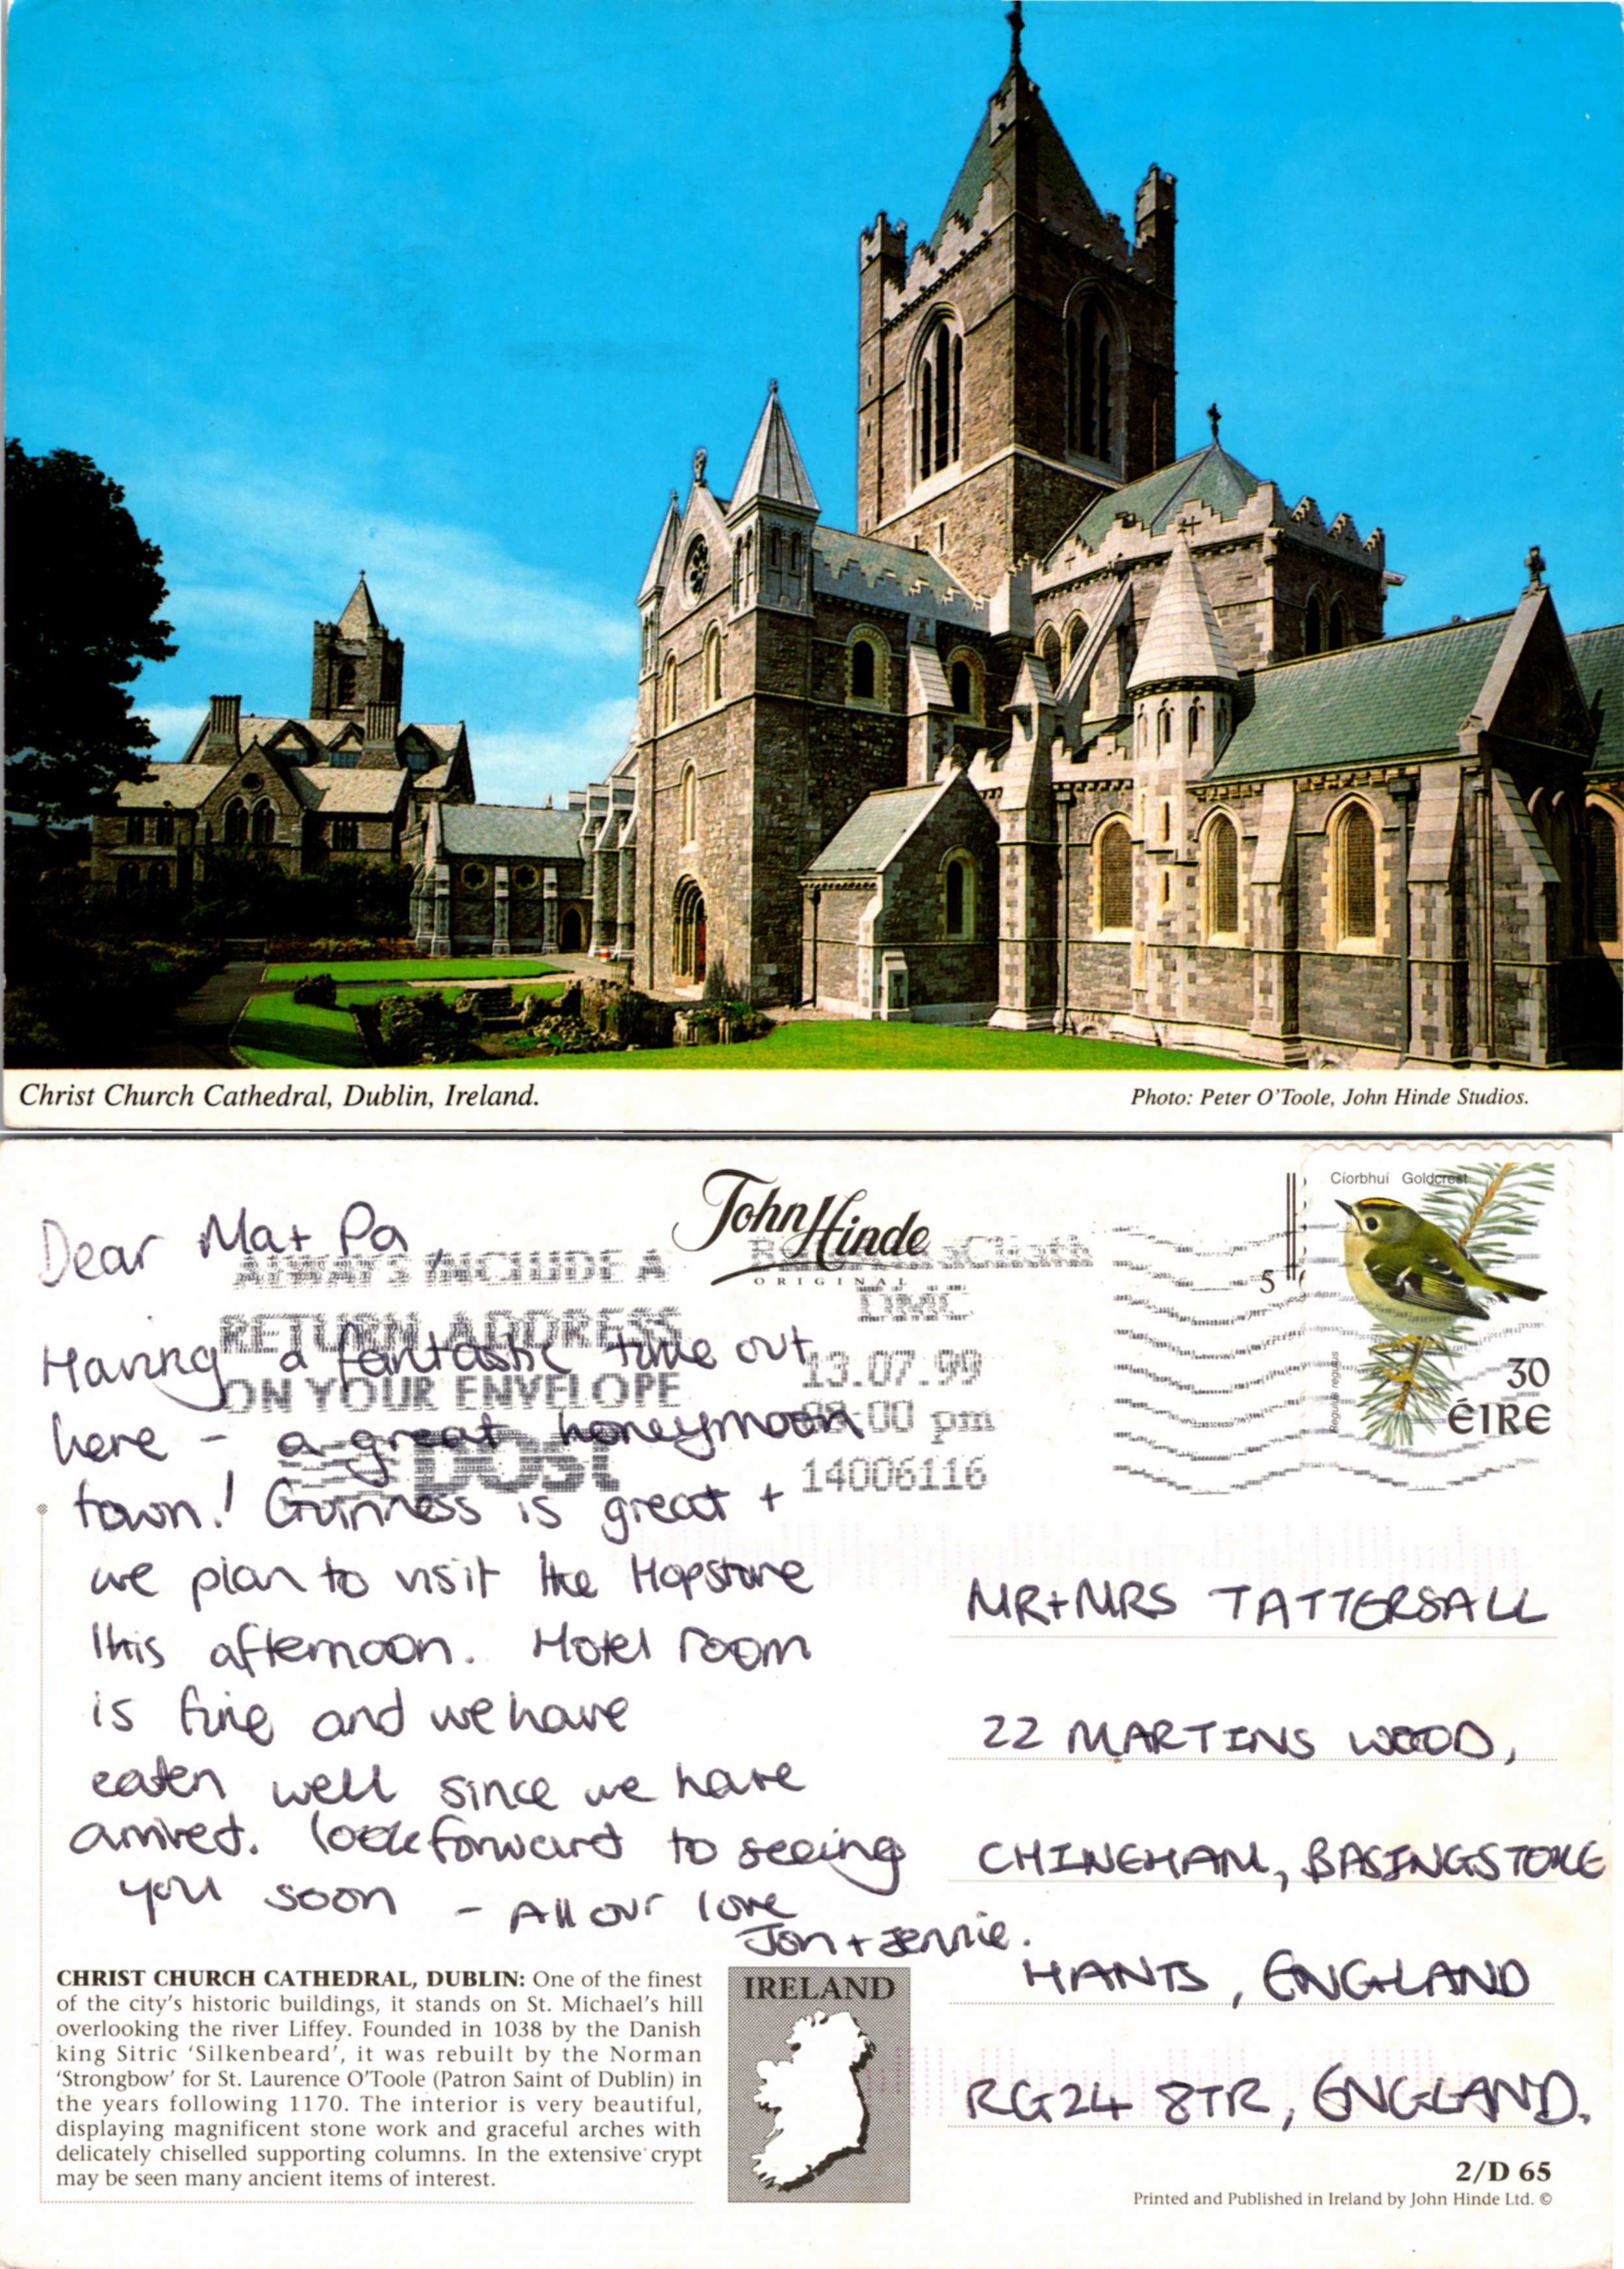 Christ Church Cathedral, Dublin, Ireland.
Photo: Peter O'Toole, John Hinde Studios.
John Hinde
ORIGINAL
Dear Ma + Pa,
Having a fantastic time out
here - a great honeymoon
town! Guinness is great +
we plan to visit the Hopstore
this afternoon. Hotel room
is fine and we have
eaten well since we have
arrived. look forward to seeing
you soon - All our love
Jon + Jennie.
ALWAYS INCLUDE A
RETURN ADDRESS
ON YOUR ENVELOPE
post
DMC
13.07.99
:00 pm
14006116
5
Cíorbhuí Goldcrest
Regulus regulus
30
ÉIRE
MR + MRS TATTERSALL
22 MARTINS WOOD,
CHINEHAM, BASINGSTOKE
HANTS, ENGLAND
RG24 8TR, ENGLAND.
CHRIST CHURCH CATHEDRAL, DUBLIN: One of the finest
of the city's historic buildings, it stands on St. Michael's hill
overlooking the river Liffey. Founded in 1038 by the Danish
king Sitric 'Silkenbeard', it was rebuilt by the Norman
'Strongbow' for St. Laurence O'Toole (Patron Saint of Dublin) in
the years following 1170. The interior is very beautiful,
displaying magnificent stone work and graceful arches with
delicately chiselled supporting columns. In the extensive crypt
may be seen many ancient items of interest.
IRELAND
2/D 65
Printed and Published in Ireland by John Hinde Ltd. ©